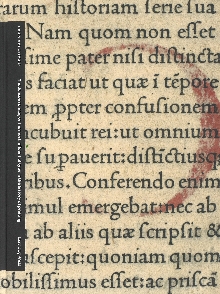 tarum historiam serie sua
Nam quom non esset
sime pater nisi distincta
s faciat ut quæ ī tēpore
em ꝓpter confusionem
cubuit rei:ut omnium
e su̲pauerit:distīctius
ibus. Conferendo enim
mul emergebat:nec ab
ab aliis quæ scripsit &
uscepit:quoniam quom
obilissimus esset:ac priscā